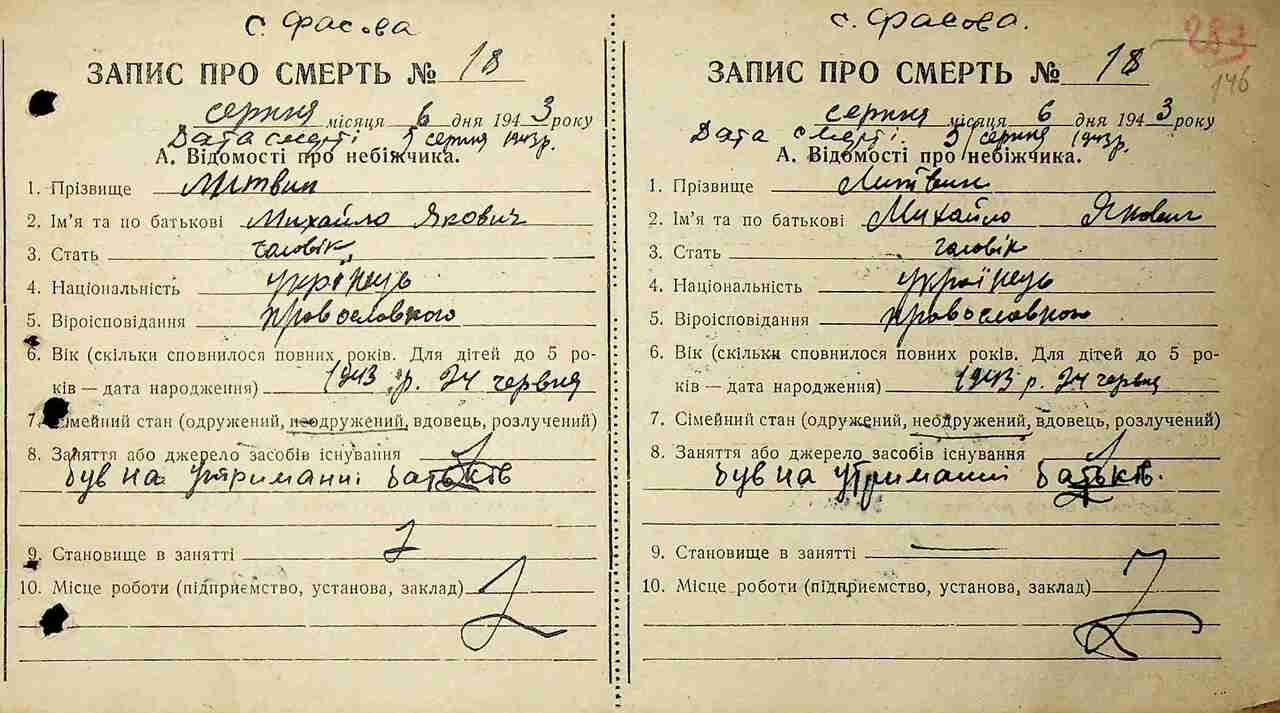 с. Фасова
ЗАПИС ПРО СМЕРТЬ № 18
серпня місяця 6 дня 1943 року
Дата смерті 5 серпня 1943 р.
А. Відомості про небіжчика.
1. Прізвище Литвин
2. Ім'я та по батькові Михайло Якович
3. Стать чоловік
4. Національність українець
5. Віроісповідання православного
6. Вік (скільки сповнилося повних років. Для дітей до 5 ро-
ків — дата народження) 1943 р. 24 червня
7. Сімейний стан (одружений, неодружений, вдовець, розлучений)
8. Заняття або джерело засобів існування
був на утриманні батьків
9. Становище в занятті
10. Місце роботи (підприємство, установа, заклад)
с. Фасова.
283
146
ЗАПИС ПРО СМЕРТЬ № 18
серпня місяця 6 дня 1943 року
Дата смерті 5 серпня 1943 р.
А. Відомості про небіжчика.
1. Прізвище Литвин
2. Ім'я та по батькові Михайло Якович
3. Стать чоловік
4. Національність українець
5. Віроісповідання православного
6. Вік (скільки сповнилося повних років. Для дітей до 5 ро-
ків — дата народження) 1943 р. 24 червня
7. Сімейний стан (одружений, неодружений, вдовець, розлучений)
8. Заняття або джерело засобів існування
був на утриманні батьків.
9. Становище в занятті —
10. Місце роботи (підприємство, установа, заклад)